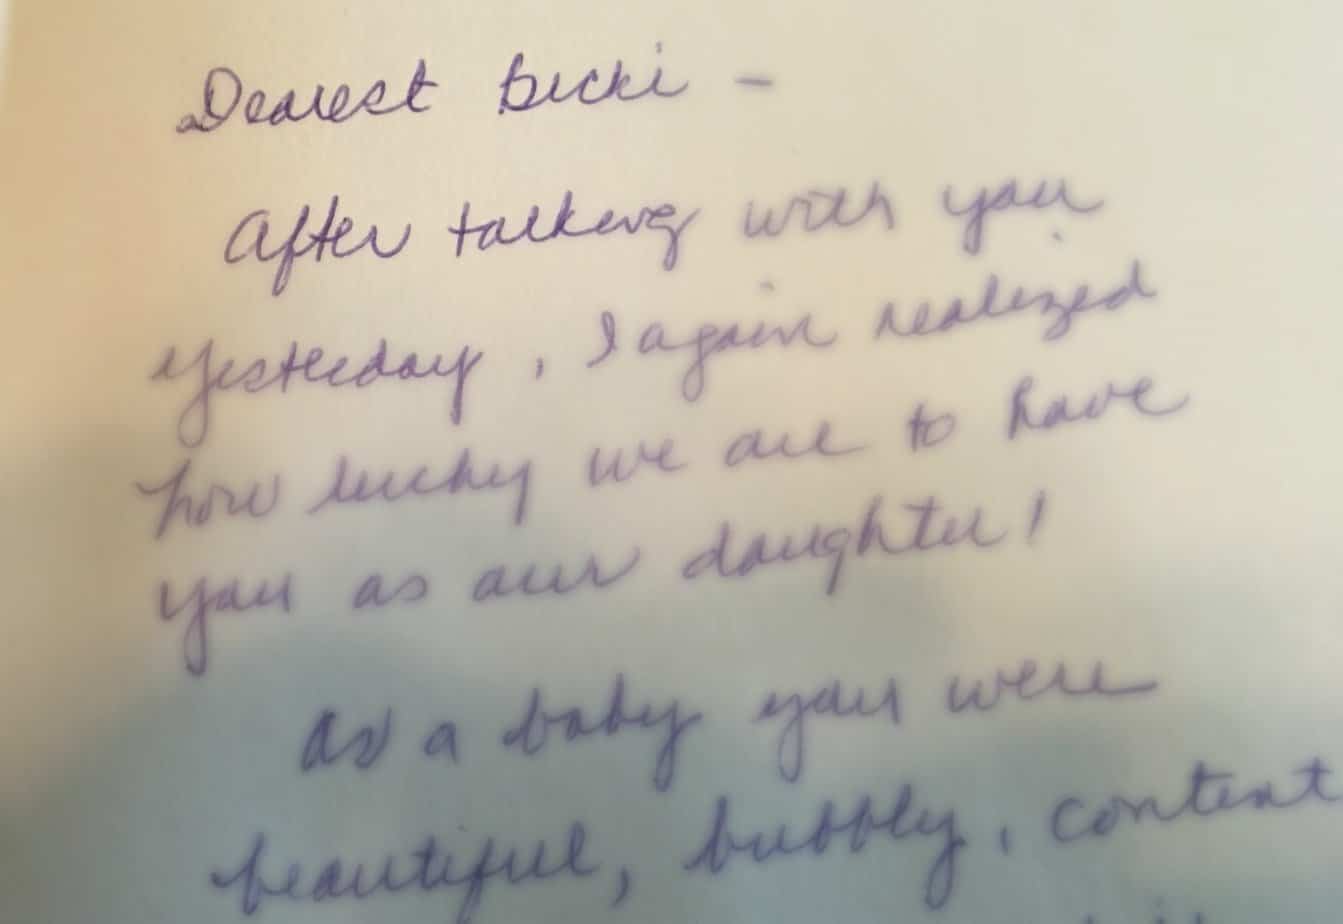 Dearest Becki -
After talking with you
yesterday, I again realized
how lucky we are to have
you as our daughter!
As a baby you were
beautiful, bubbly, content